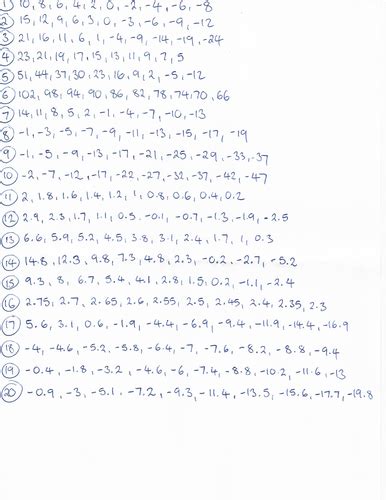 1 10, 8, 6, 4, 2, 0, -2, -4, -6, -8
2 15, 12, 9, 6, 3, 0, -3, -6, -9, -12
3 21, 16, 11, 6, 1, -4, -9, -14, -19, -24
4 23, 21, 19, 17, 15, 13, 11, 9, 7, 5
5 51, 44, 37, 30, 23, 16, 9, 2, -5, -12
6 102, 98, 94, 90, 86, 82, 78, 74, 70, 66
7 14, 11, 8, 5, 2, -1, -4, -7, -10, -13
8 -1, -3, -5, -7, -9, -11, -13, -15, -17, -19
9 -1, -5, -9, -13, -17, -21, -25, -29, -33, -37
10 -2, -7, -12, -17, -22, -27, -32, -37, -42, -47
11 2, 1.8, 1.6, 1.4, 1.2, 1, 0.8, 0.6, 0.4, 0.2
12 2.9, 2.3, 1.7, 1.1, 0.5, -0.1, -0.7, -1.3, -1.9, -2.5
13 6.6, 5.9, 5.2, 4.5, 3.8, 3.1, 2.4, 1.7, 1, 0.3
14 14.8, 12.3, 9.8, 7.3, 4.8, 2.3, -0.2, -2.7, -5.2
15 9.3, 8, 6.7, 5.4, 4.1, 2.8, 1.5, 0.2, -1.1, -2.4
16 2.75, 2.7, 2.65, 2.6, 2.55, 2.5, 2.45, 2.4, 2.35, 2.3
17 5.6, 3.1, 0.6, -1.9, -4.4, -6.9, -9.4, -11.9, -14.4, -16.9
18 -4, -4.6, -5.2, -5.8, -6.4, -7, -7.6, -8.2, -8.8, -9.4
19 -0.4, -1.8, -3.2, -4.6, -6, -7.4, -8.8, -10.2, -11.6, -13
20 -0.9, -3, -5.1, -7.2, -9.3, -11.4, -13.5, -15.6, -17.7, -19.8